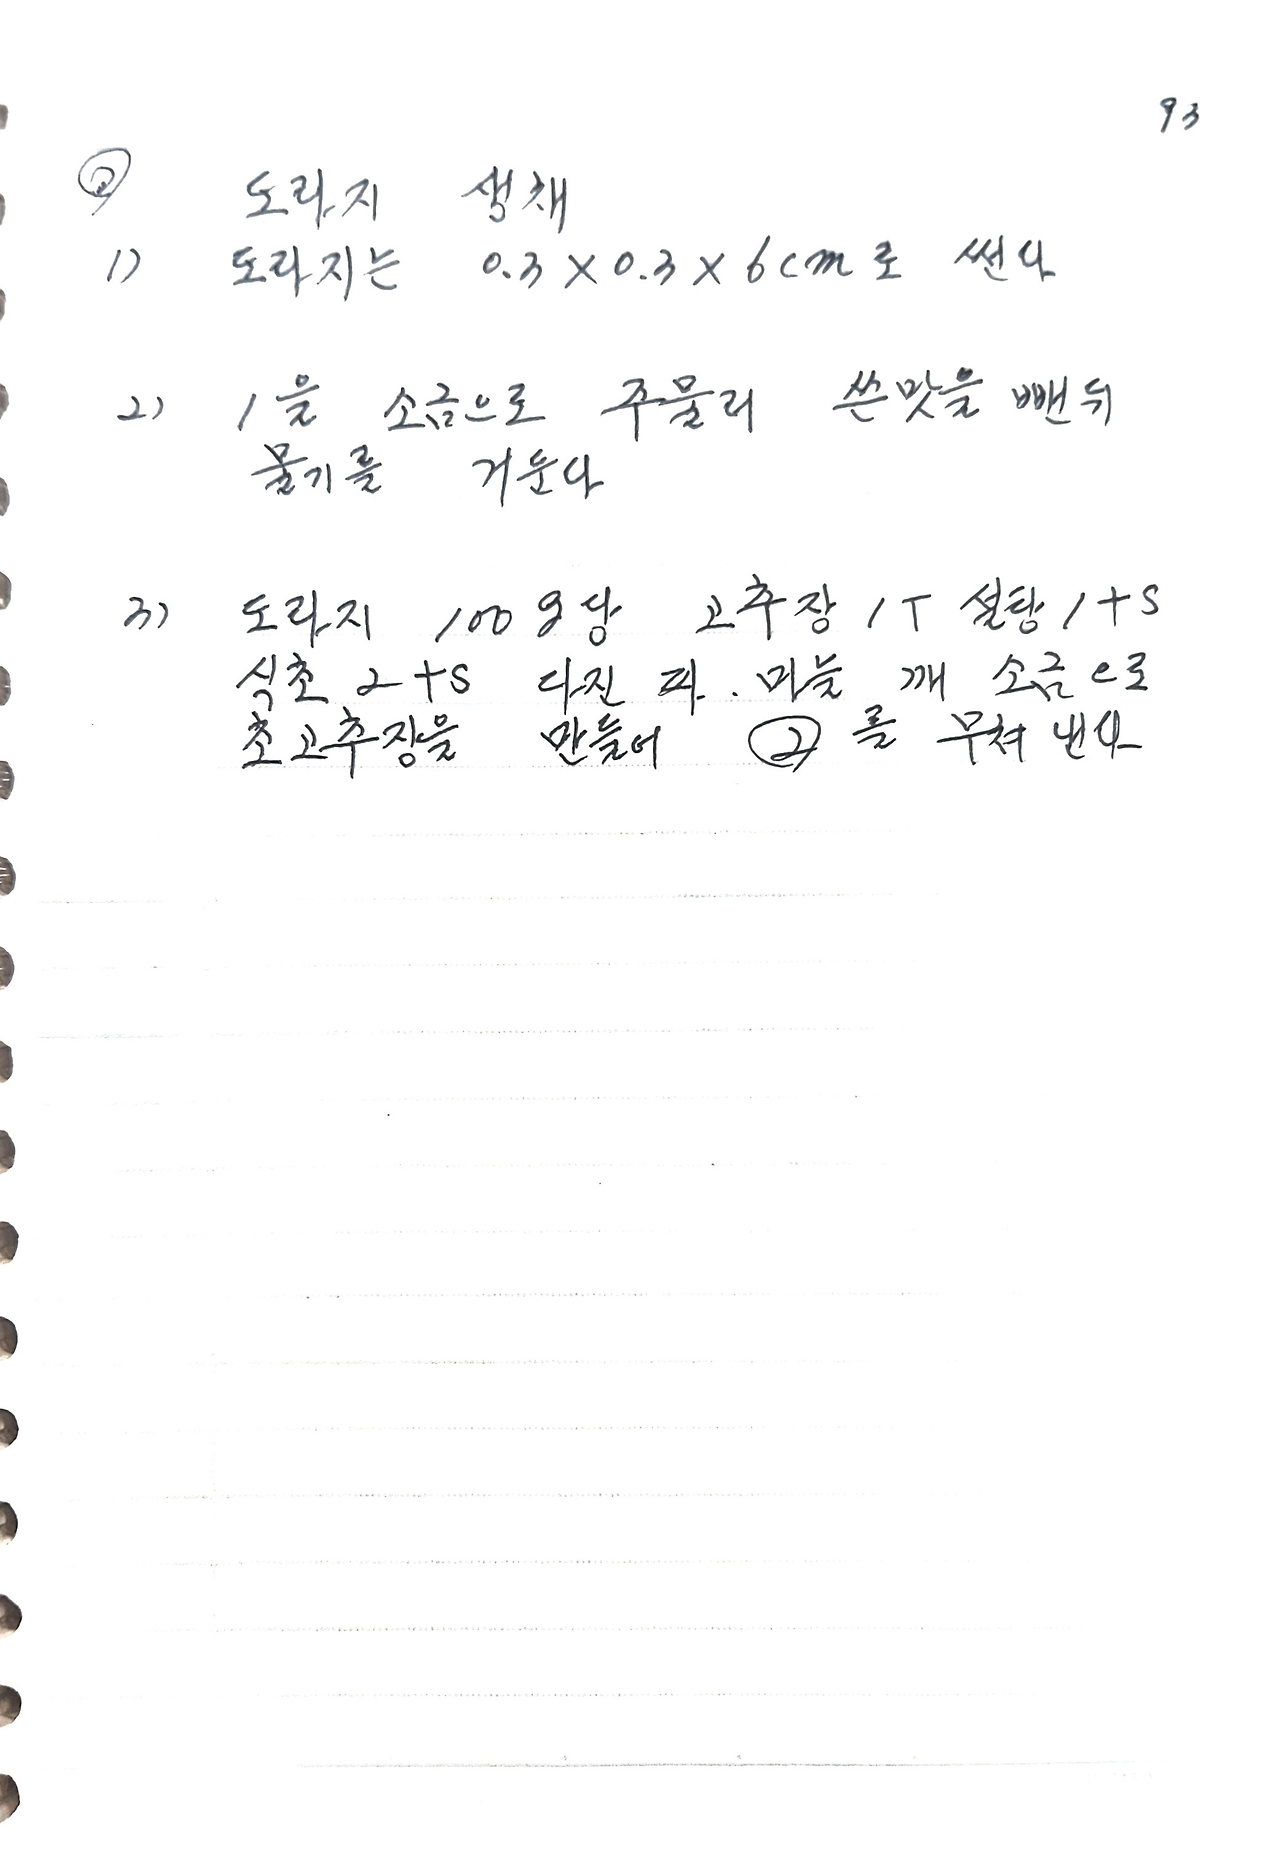 93
◎ 도라지 생채
1) 도라지는 0.3×0.3×6cm로 썬다
2) 1을 소금으로 주물러 쓴맛을 뺀뒤
물기를 거둔다
3) 도라지 100g당 고추장 1T 설탕 1ts
식초 2ts 다진 파.마늘 깨 소금으로
초고추장을 만들어 ②를 무쳐 낸다